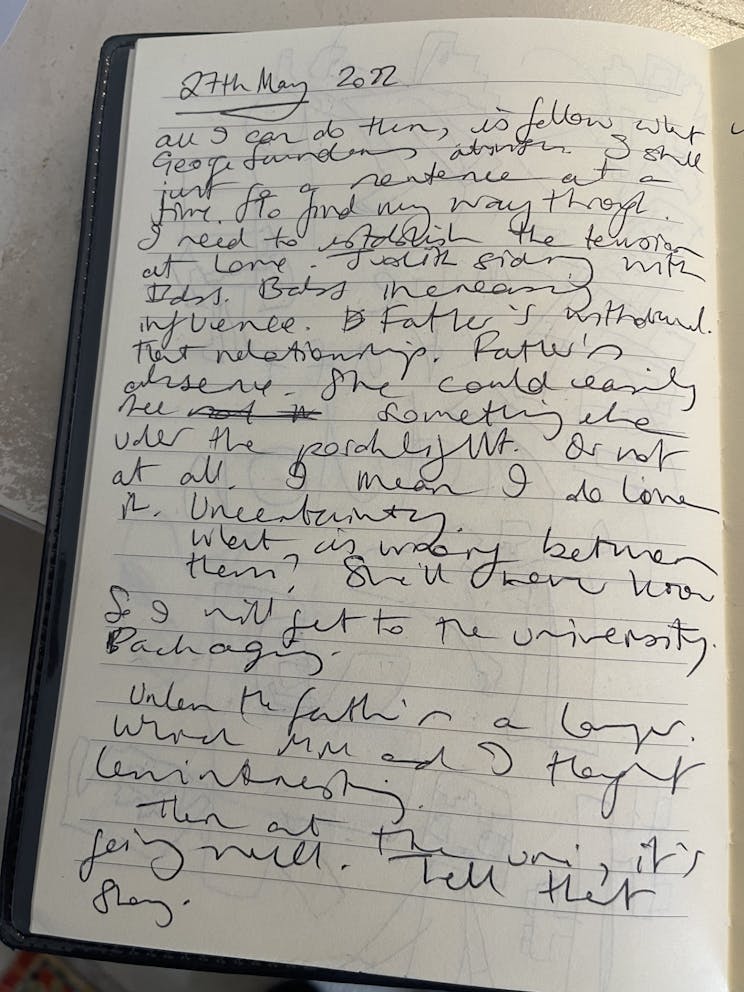 27th May 2022
all I can do then, is follow what
George Saunders I shall
just go a sentence at a
time. To find my way through.
I need to establish the tension
at home. Judith siding with
Babs increasing
influence. Father's withdrawl.
that relationship. Father's
absence. She could easily
see something else
under the porchlight. Or not
at all. I mean I do love
it. Uncertainty.
What is wrong between
them? She'll never know
So I will get to the university.
Packaging.
Unless the father is a lawyer.
Which MM and I thought
less interesting.
Then at the uni, it's
going well. Tell that
Story.